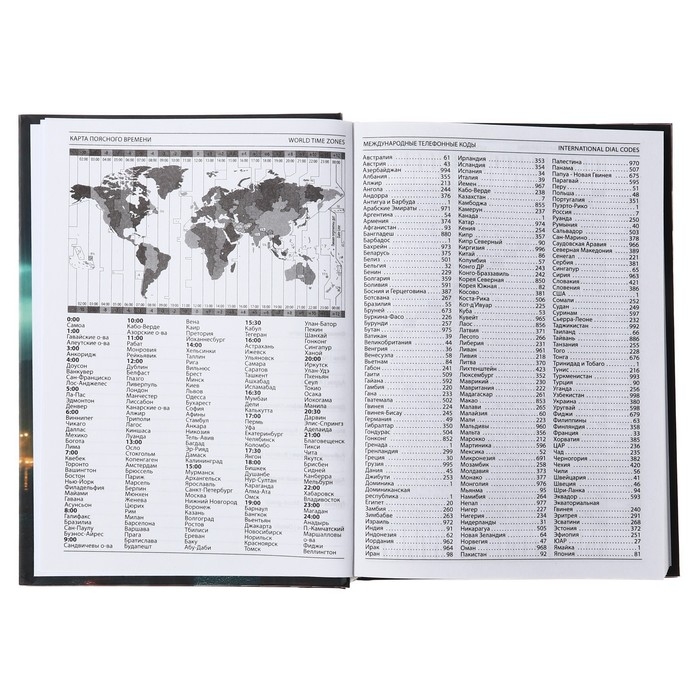 КАРТА ПОЯСНОГО ВРЕМЕНИ
WORLD TIME ZONES
0:00
Самоа
1:00
Гавайские о-ва
Алеутские о-ва
3:00
Анкоридж
4:00
Доусон
Ванкувер
Сан-Франциско
Лос-Анджелес
5:00
Ла-Пас
Эдмонтон
Денвер
6:00
Виннипег
Чикаго
Даллас
Мехико
Богота
Лима
7:00
Квебек
Торонто
Вашингтон
Бостон
Нью-Йорк
Филадельфия
Майами
Гавана
Асунсьон
8:00
Галифакс
Бразилиа
Сан-Паулу
Буэнос-Айрес
9:00
Сандвичевы о-ва
10:00
Кабо-Верде
Азорские о-ва
11:00
Рабат
Монровия
Рейкьявик
12:00
Дублин
Белфаст
Глазго
Ливерпуль
Манчестер
Лиссабон
Канарские о-ва
Лондон
Триполи
Лагос
Киншаса
Луанда
13:00
Осло
Стокгольм
Копенгаген
Амстердам
Брюссель
Париж
Марсель
Берлин
Мюнхен
Женева
Цюрих
Рим
Милан
Барселона
Варшава
Прага
Братислава
Будапешт
Вена
Каир
Претория
Йоханнесбург
14:00
Хельсинки
Таллин
Рига
Вильнюс
Брест
Минск
Киев
Одесса
Бухарест
София
Афины
Стамбул
Анкара
Никосия
Тель-Авив
Багдад
Эр-Рияд
Дамаск
15:00
Мурманск
Архангельск
Ярославль
Санкт-Петербург
Москва
Нижний Новгород
Воронеж
Казань
Волгоград
Ростов
Тбилиси
Ереван
Баку
Абу-Даби
15:30
Кабул
Тегеран
16:00
Астрахань
Ижевск
Ульяновск
Самара
Саратов
Ташкент
Ашхабад
Исламабад
16:30
Мумбаи
Дели
Калькутта
17:00
Пермь
Уфа
Екатеринбург
Челябинск
Коломбо
17:30
Янгон
18:00
Бишкек
Душанбе
Нур-Султан
Караганда
Алма-Ата
Омск
19:00
Барнаул
Бангкок
Вьентьян
Джакарта
Новосибирск
Норильск
Красноярск
Томск
Улан-Батор
Пекин
Шанхай
Гонконг
Сингапур
Ханой
20:00
Иркутск
Улан-Удэ
Пхеньян
Сеул
Токио
Осака
Иокогама
Манила
20:30
Дарвин
Элис-Спрингс
Аделаида
21:00
Благовещенск
Тикси
Чита
Якутск
Брисбен
Сидней
Канберра
Мельбурн
22:00
Хабаровск
Владивосток
23:00
Магадан
24:00
Анадырь
П.-Камчатский
Маршалловы
о-ва
Фиджи
Веллингтон
МЕЖДУНАРОДНЫЕ ТЕЛЕФОННЫЕ КОДЫ
INTERNATIONAL DIAL CODES
Австралия 61
Австрия 43
Азербайджан 994
Албания 355
Алжир 213
Ангола 244
Андорра 376
Антигуа и Барбуда 1
Арабские Эмираты 971
Аргентина 54
Армения 374
Афганистан 93
Бангладеш 880
Барбадос 1
Бахрейн 973
Беларусь 375
Белиз 501
Бельгия 32
Бенин 229
Болгария 359
Боливия 591
Босния и Герцеговина 387
Ботсвана 267
Бразилия 55
Бруней 673
Буркина-Фасо 226
Бурунди 257
Бутан 975
Ватикан 39
Великобритания 44
Венгрия 36
Венесуэла 58
Вьетнам 84
Габон 241
Гаити 509
Гайана 592
Гамбия 220
Гана 233
Гватемала 502
Гвинея 224
Гвинея-Бисау 245
Германия 49
Гибралтар 350
Гондурас 504
Гонконг 852
Гренада 1
Гренландия 299
Греция 30
Грузия 995
Дания 45
Джибути 253
Доминика 1
Доминиканская
республика 1
Египет 20
Замбия 260
Зимбабве 263
Израиль 972
Индия 91
Индонезия 62
Иордания 962
Ирак 964
Иран 98
Ирландия 353
Исландия 354
Испания 34
Италия 39
Йемен 967
Кабо-Верде 238
Казахстан 7
Камбоджа 855
Камерун 237
Канада 1
Катар 974
Кения 254
Кипр 357
Кипр Северный 90
Киргизия 996
Китай 86
Колумбия 57
Конго ДР 243
Конго-Браззавиль 242
Корея Северная 850
Корея Южная 82
Косово 381
Коста-Рика 506
Кот-д'Ивуар 225
Куба 53
Кувейт 965
Лаос 856
Латвия 371
Лесото 266
Либерия 231
Ливан 961
Ливия 218
Литва 370
Лихтенштейн 423
Люксембург 352
Маврикий 230
Мавритания 222
Мадагаскар 261
Макао 853
Малави 265
Малайзия 60
Мали 223
Мальдивы 960
Мальта 356
Марокко 212
Мартиника 596
Мексика 52
Микронезия 691
Мозамбик 258
Молдавия 373
Монако 377
Монголия 976
Мьянма 95
Намибия 264
Непал 977
Нигер 227
Нигерия 234
Нидерланды 31
Никарагуа 505
Новая Зеландия 64
Норвегия 47
Оман 968
Пакистан 92
Палестина 970
Панама 507
Папуа - Новая Гвинея 675
Парагвай 595
Перу 51
Польша 48
Португалия 351
Пуэрто-Рико 1
Россия 7
Руанда 250
Румыния 40
Сальвадор 503
Сан-Марино 378
Саудовская Аравия 966
Северная Македония 389
Сенегал 221
Сербия 381
Сингапур 65
Сирия 963
Словакия 421
Словения 386
США 1
Сомали 252
Судан 249
Суринам 597
Сьерра-Леоне 232
Таджикистан 992
Таиланд 66
Тайвань 886
Танзания 255
Того 228
Тонга 676
Тринидад и Тобаго 1
Тунис 216
Туркменистан 993
Турция 90
Уганда 256
Узбекистан 998
Украина 380
Уругвай 598
Фиджи 679
Филиппины 63
Финляндия 358
Франция 33
Хорватия 385
ЦАР 236
Чад 235
Черногория 382
Чехия 420
Чили 56
Швейцария 41
Швеция 46
Шри-Ланка 94
Эквадор 593
Экваториальная
Гвинея 240
Эритрея 291
Эсватини 268
Эстония 372
Эфиопия 251
ЮАР 27
Ямайка 1
Япония 81